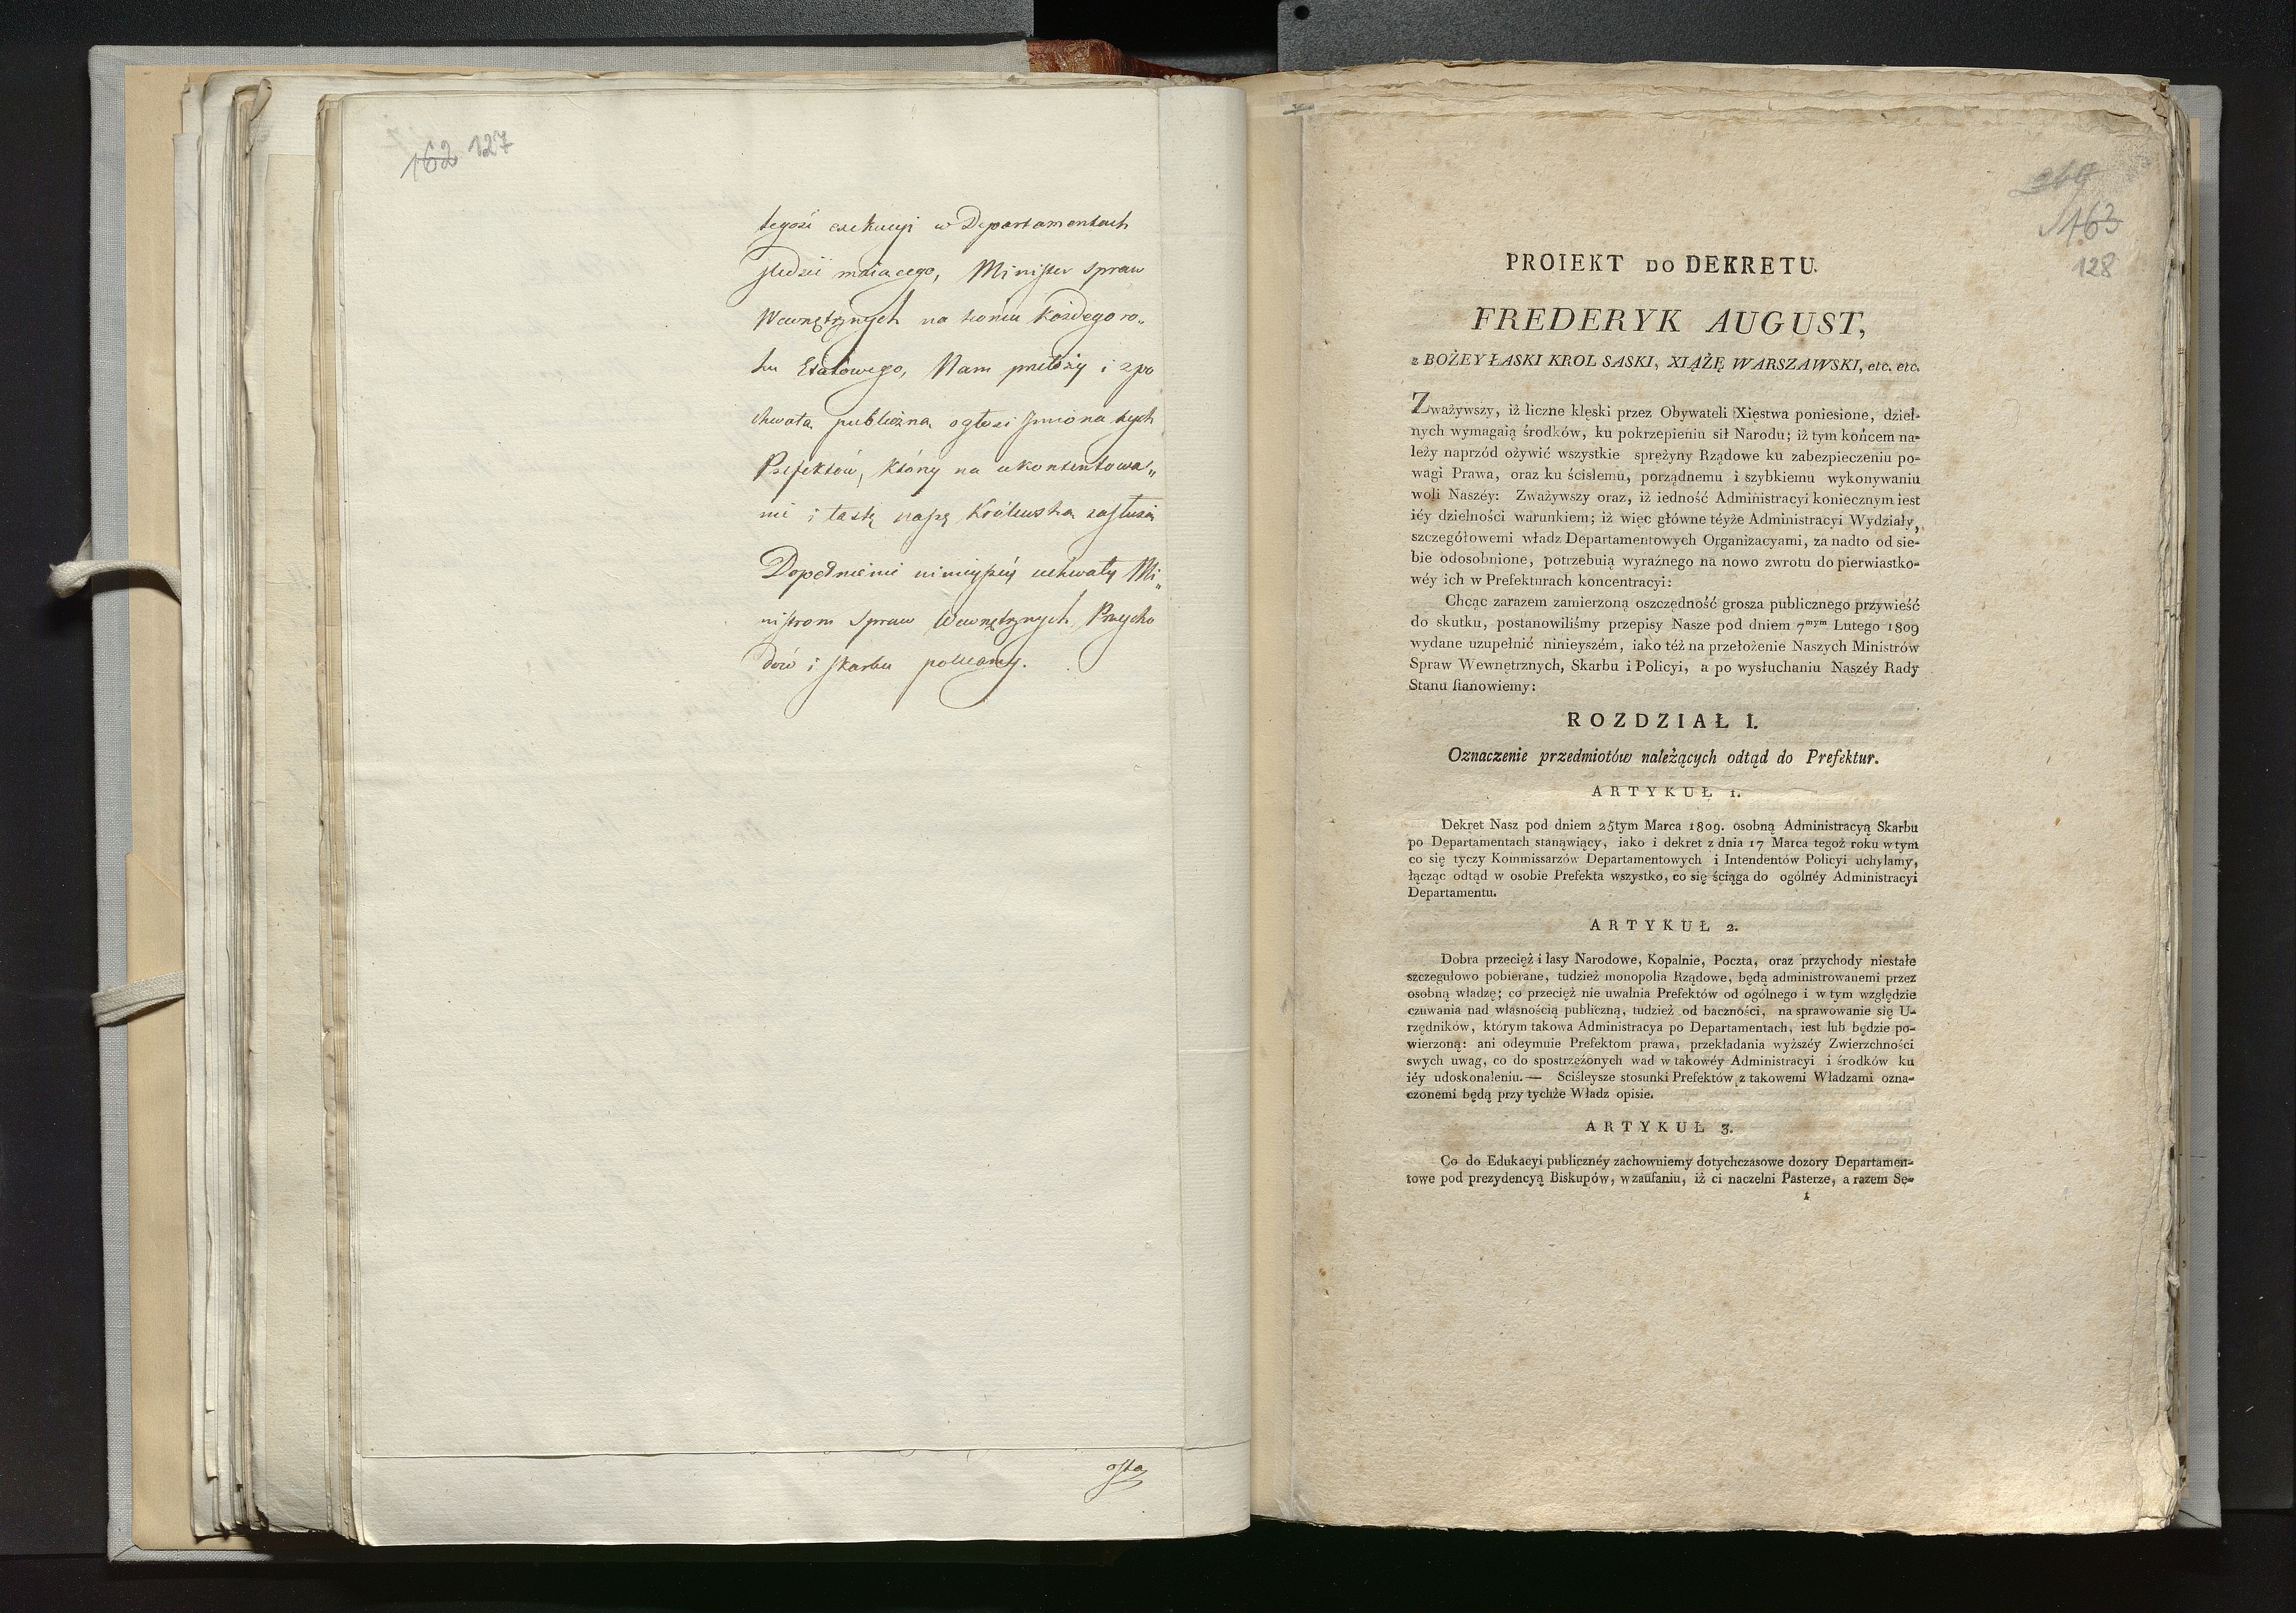 162 127
tegoż exekucyi w Departamentach
śledzić maiącego, Minister Spraw
Wewnętrznych na końcu każdego ro„
ku Etatowego, Nam przełoży i z po
chwałą publiczną ogłosi Imiona tych
Prefektów, który na ukontentowa„
nie i łaskę naszę Królewską zasłużą
Dopełnienie ninieyszéy uchwały Mi„
nistrom Spraw Wewnętrznych, Przycho
dów i Skarbu polecamy.
163
128
PROIEKT DO DEKRETU.
FREDERYK AUGUST,
z BOŻEY ŁASKI KROL SASKI, XIĄŻĘ WARSZAWSKI, etc. etc.
Zważywszy, iż liczne klęski przez Obywateli Xięstwa poniesione, dziel-
nych wymagaią środków, ku pokrzepieniu sił Narodu; iż tym końcem na-
leży naprzód ożywić wszystkie sprężyny Rządowe ku zabezpieczeniu po-
wagi Prawa, oraz ku ścisłemu, porządnemu i szybkiemu wykonywaniu
woli Naszéy: Zważywszy oraz, iż iedność Administracyi koniecznym iest
iéy dzielności warunkiem; iż więc główne téyże Administracyi Wydziały,
szczegółowemi władz Departamentowych Organizacyami, za nadto od sie-
bie odosobnione, potrzebuią wyraźnego na nowo zwrotu do pierwiastko-
wéy ich w Prefekturach koncentracyi:
Chcąc zarazem zamierzoną oszczędność grosza publicznego przywieść
do skutku, postanowiliśmy przepisy Nasze pod dniem 7mym Lutego 1809
wydane uzupełnić ninieyszém, iako téż na przełożenie Naszych Ministrów
Spraw Wewnętrznych, Skarbu i Policyi, a po wysłuchaniu Naszéy Rady
Stanu stanowiemy:
ROZDZIAŁ I.
Oznaczenie przedmiotów należących odtąd do Prefektur.
ARTYKUŁ 1.
Dekret Nasz pod dniem 25tym Marca 1809. osobną Administracyą Skarbu
po Departamentach stanąwiący, iako i dekret z dnia 17 Marca tegoż roku w tym
co się tyczy Kommissarzów Departamentowych i Intendentów Policyi uchylamy,
łącząc odtąd w osobie Prefekta wszystko, co się ściąga do ogólnéy Administracyi
Departamentu.
ARTYKUŁ 2.
Dobra przecięż i lasy Narodowe, Kopalnie, Poczta, oraz przychody niestałe
szczegułowo pobierane, tudzież monopolia Rządowe, będą administrowanemi przez
osobną władzę; co przecięż nie uwalnia Prefektów od ogólnego i w tym względzie
czuwania nad własnością publiczną, tudzież od baczności, na sprawowanie się U-
rzędników, którym takowa Administracya po Departamentach, iest lub będzie po-
wierzoną: ani odeymuie Prefektom prawa, przekładania wyższéy Zwierzchności
swych uwag, co do spostrzeżonych wad w takowéy Administracyi i środków ku
iéy udoskonaleniu.— Sciśleysze stosunki Prefektów z takowemi Władzami ozna-
czonemi będą przy tychże Władz opisie.
ARTYKUŁ 3.
Co do Edukacyi publicznéy zachowuiemy dotychczasowe dozory Departamen-
towe pod prezydencyą Biskupów, w zaufaniu, iż ci naczelni Pasterze, a razem Sę-
1